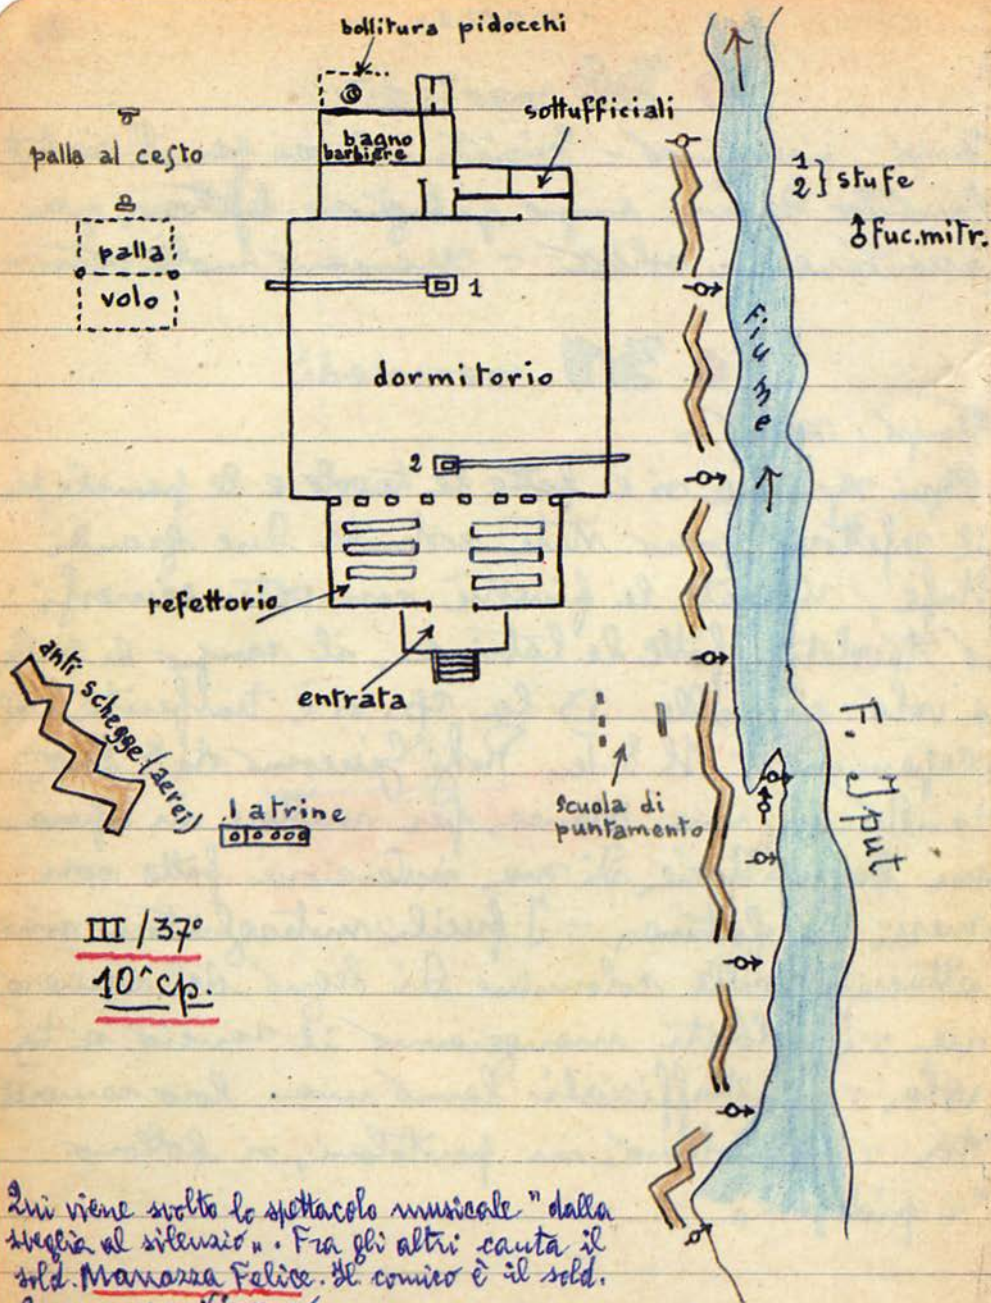 bollitura pidocchi
sottufficiali
palla al cesto
bagno
barbiere
1
2 } stufe
fuc. mitr.
palla
volo
1
dormitorio
Fiume
2
refettorio
entrata
anti schegge (aerei)
latrine
scuola di
puntamento
F. Jput
III / 37°
10^ cp.
Qui viene svolto lo spettacolo musicale " dalla
sveglia al silenzio „. Fra gli altri canta il
sold. Manazza Felice. Il comico è il sold.